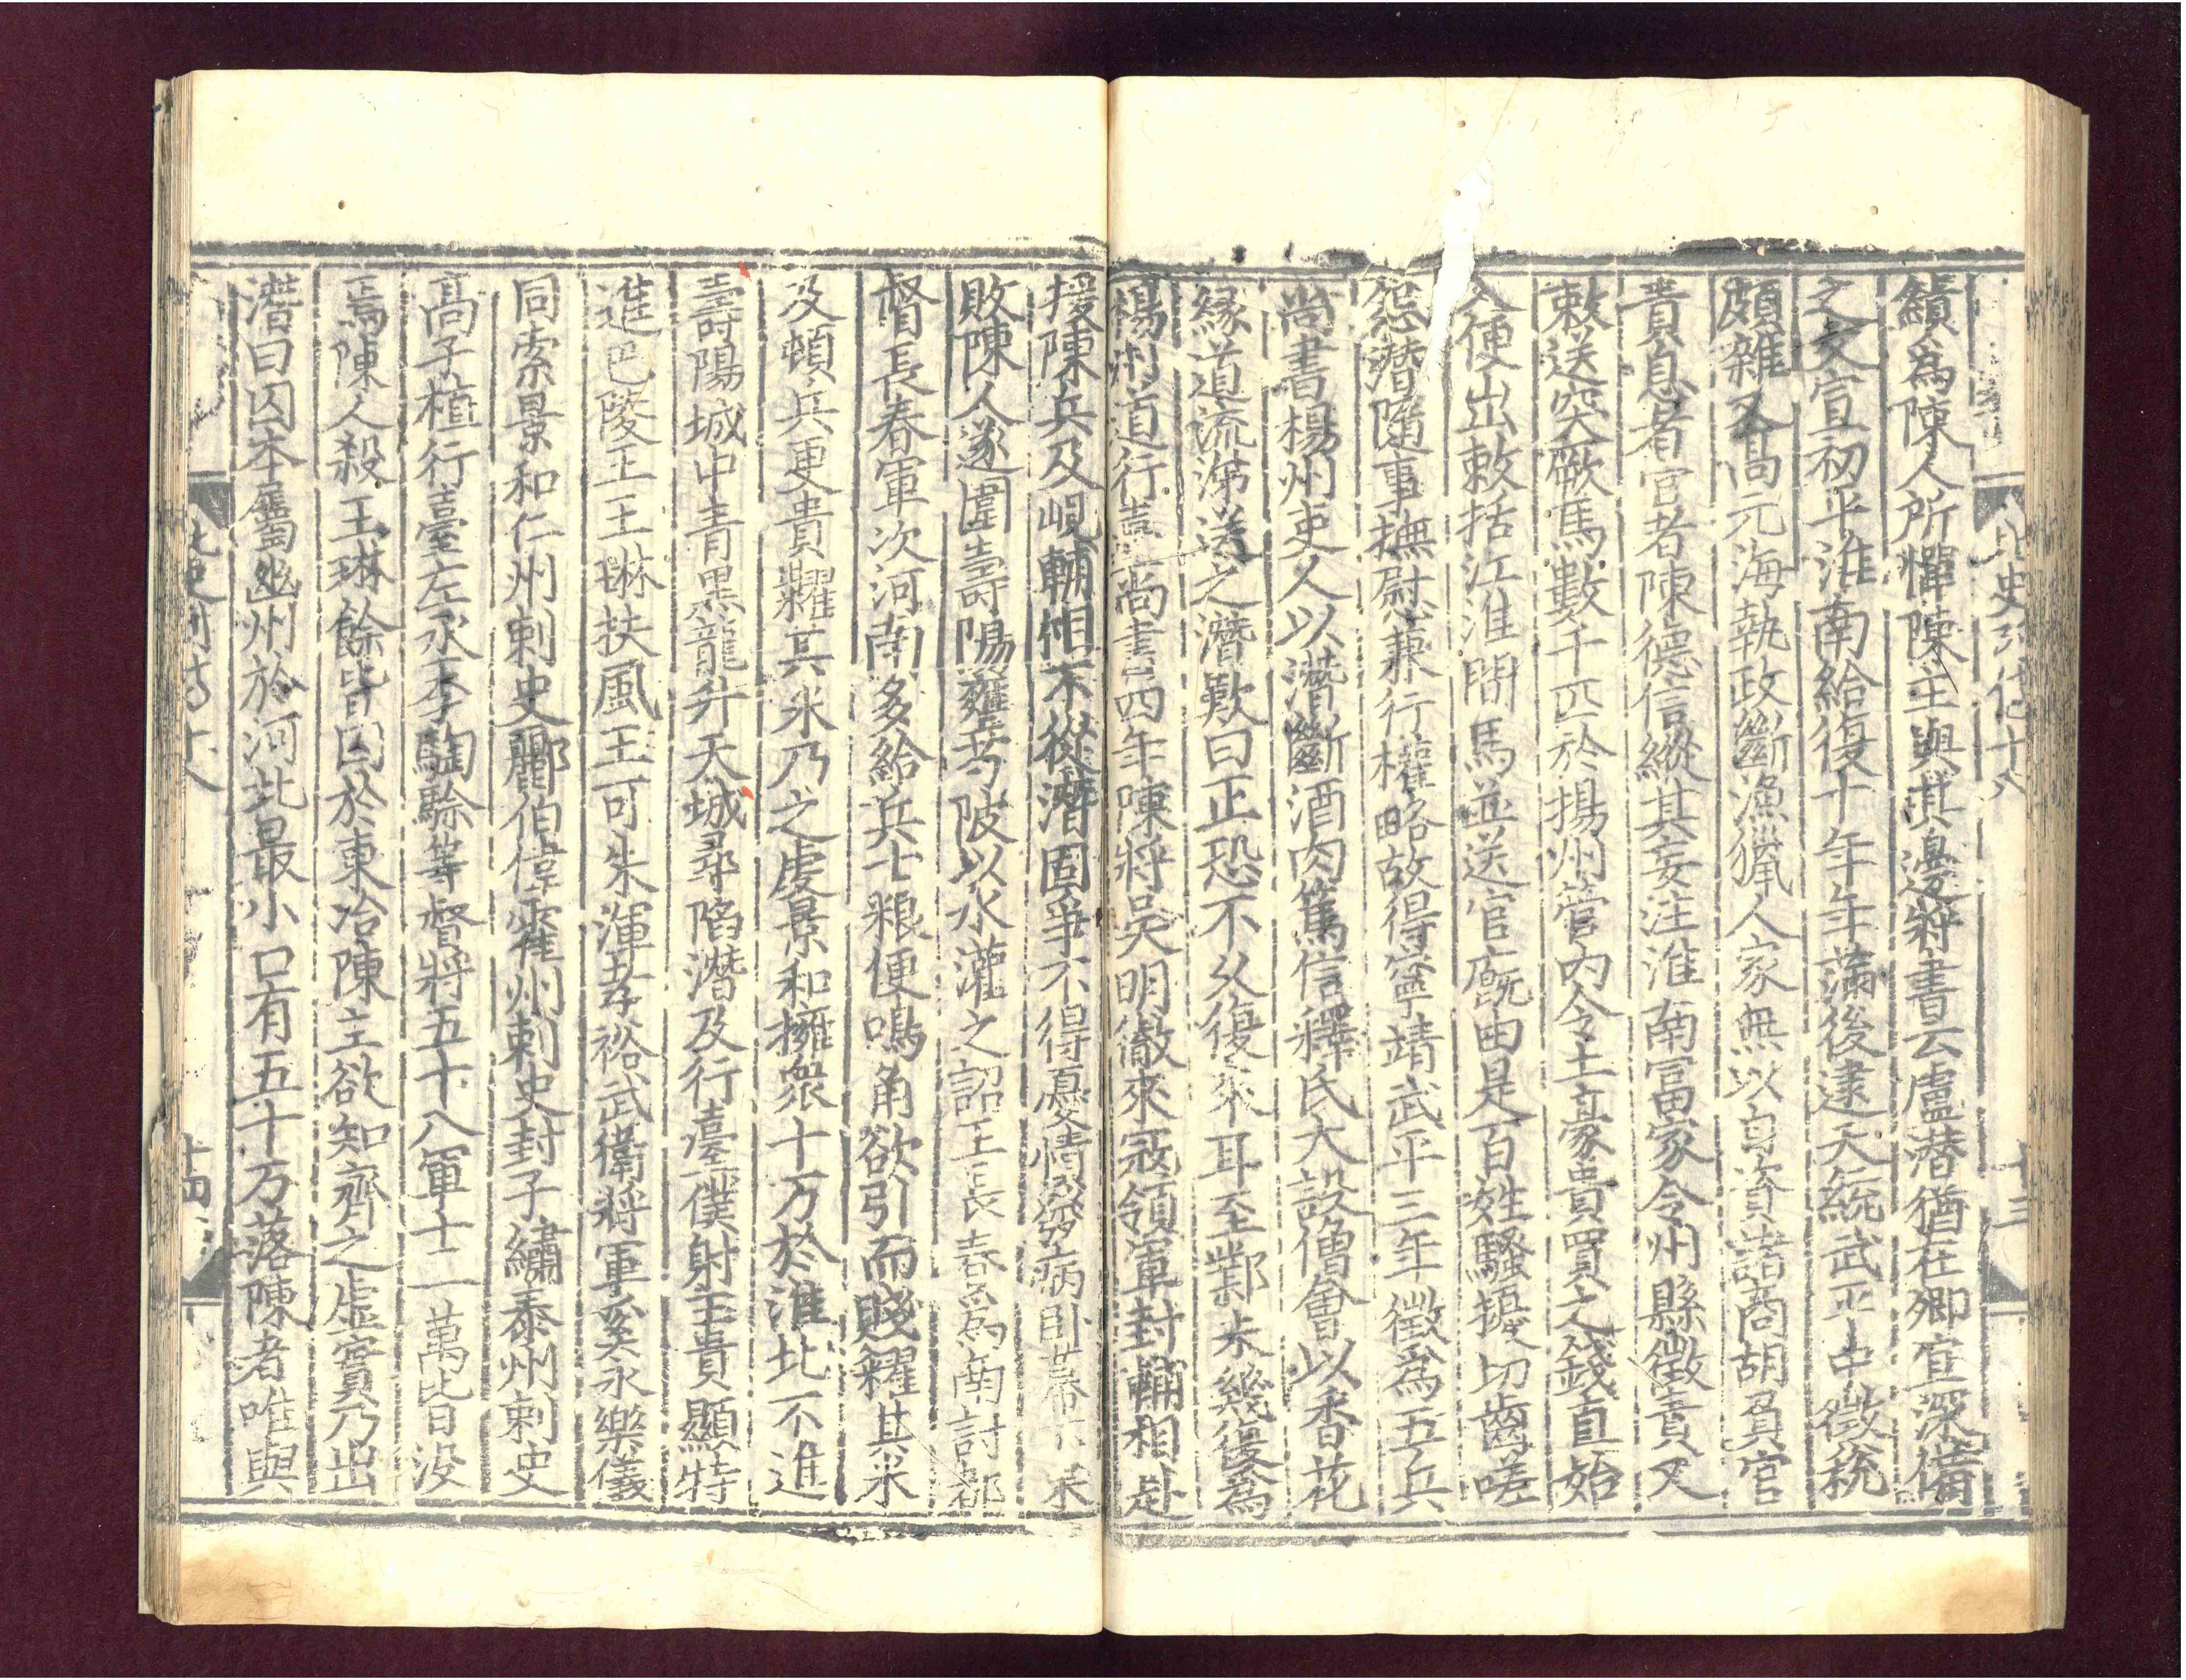 北史列傳十八
十三
績爲陳人所憚陳主與其邊將書云盧潛猶在卿宜深備
之文宣初平淮南給復十年年滿後逮天統武平中徵稅
頗雜又高元海執政斷漁獵人家無以自資諸商胡負官
責息者宦者陳德信縱其妄注淮南富家令州縣徵責又
敕送突厥馬數千匹於揚州管內令土豪貴買之錢直始
入便出敕括江淮間馬並送官廐由是百姓騷擾切齒嗟
怨潛隨事撫慰兼行權略故得寧靖武平三年徵爲五兵
尚書楊州吏人以潛斷酒肉篤信釋氏大設僧會以香花
緣道流涕送之潛歎曰正恐不久復來耳至鄴未幾復爲
楊州道行臺尚書四年陳將吳明徹來寇領軍封輔相赴
援陳兵及峴輔相不從潛固爭不得憂憤發病臥幕下果
敗陳人遂圍壽陽壅芍陂以水灌之詔王長春爲南討都
督長春軍次河南多給兵士粮便鳴角欲引而賤糴其米
及頓兵更貴糶其米乃之虜景和擁衆十万於淮北不進
壽陽城中青黑龍升天城尋陷潛及行臺僕射王貴顯特
進巴陵王王琳扶風王可朱渾孝裕武衛將軍奚永樂儀
同索景和仁州刺史酈伯偉霍州刺史封子繡泰州刺史
高子植行臺左丞李騊駼等督將五十八軍士一萬皆没
焉陳人殺王琳餘皆囚於東冶陳主欲知齊之虛實乃出
潛曰囚本屬幽州於河北最小口有五十万落陳者唯與
北史列傳十八
十四